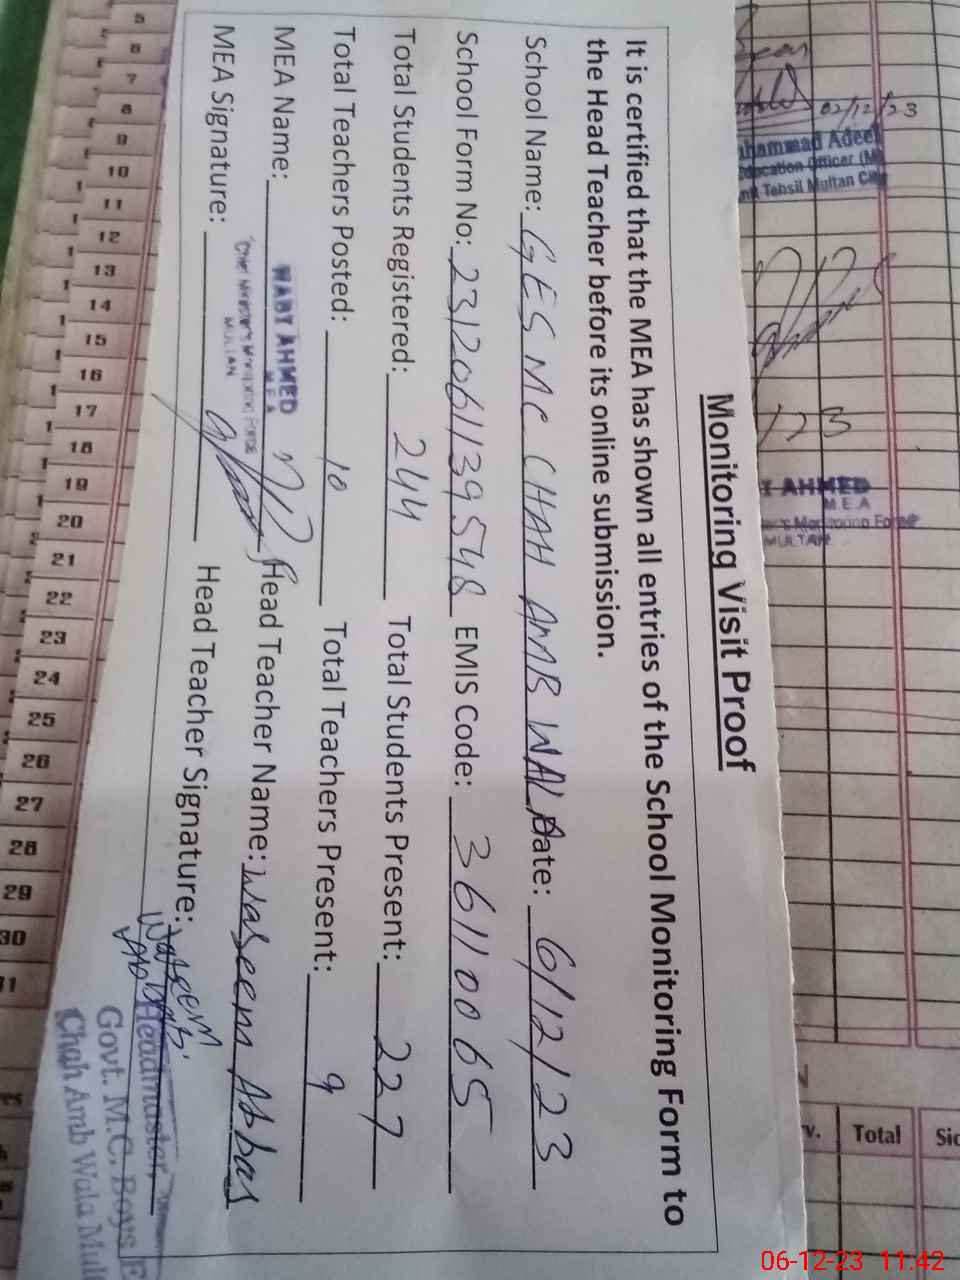 Monitoring Visit Proof
It is certified that the MEA has shown all entries of the School Monitoring Form to
the Head Teacher before its online submission.
School Name: GES MC CHAH AMB WALA Date: 6/12/23
School Form No: 2312061139548 EMIS Code: 36110065
Total Students Registered: 244 Total Students Present: 227
Total Teachers Posted: 10 Total Teachers Present: 9
MEA Name: Head Teacher Name: Waseem Abbas
MEA Signature: Head Teacher Signature: Waseem Abbas
AHMED
M E A
Chief Minister's Monitoring Force
MULTAN
Headmaster
Govt. M.C. Boys E
Chah Amb Wala Mult
02/12/23
hammad Adeel
ducation Officer (M
Tehsil Multan City
/23
AHMED
M.E.A
's Monitoring Force
MULTAN
5
6
7
8
9
10
11
12
13
14
15
16
17
18
19
20
21
22
23
24
25
26
27
28
29
30
31
v. Total Sic
06-12-23 11:42